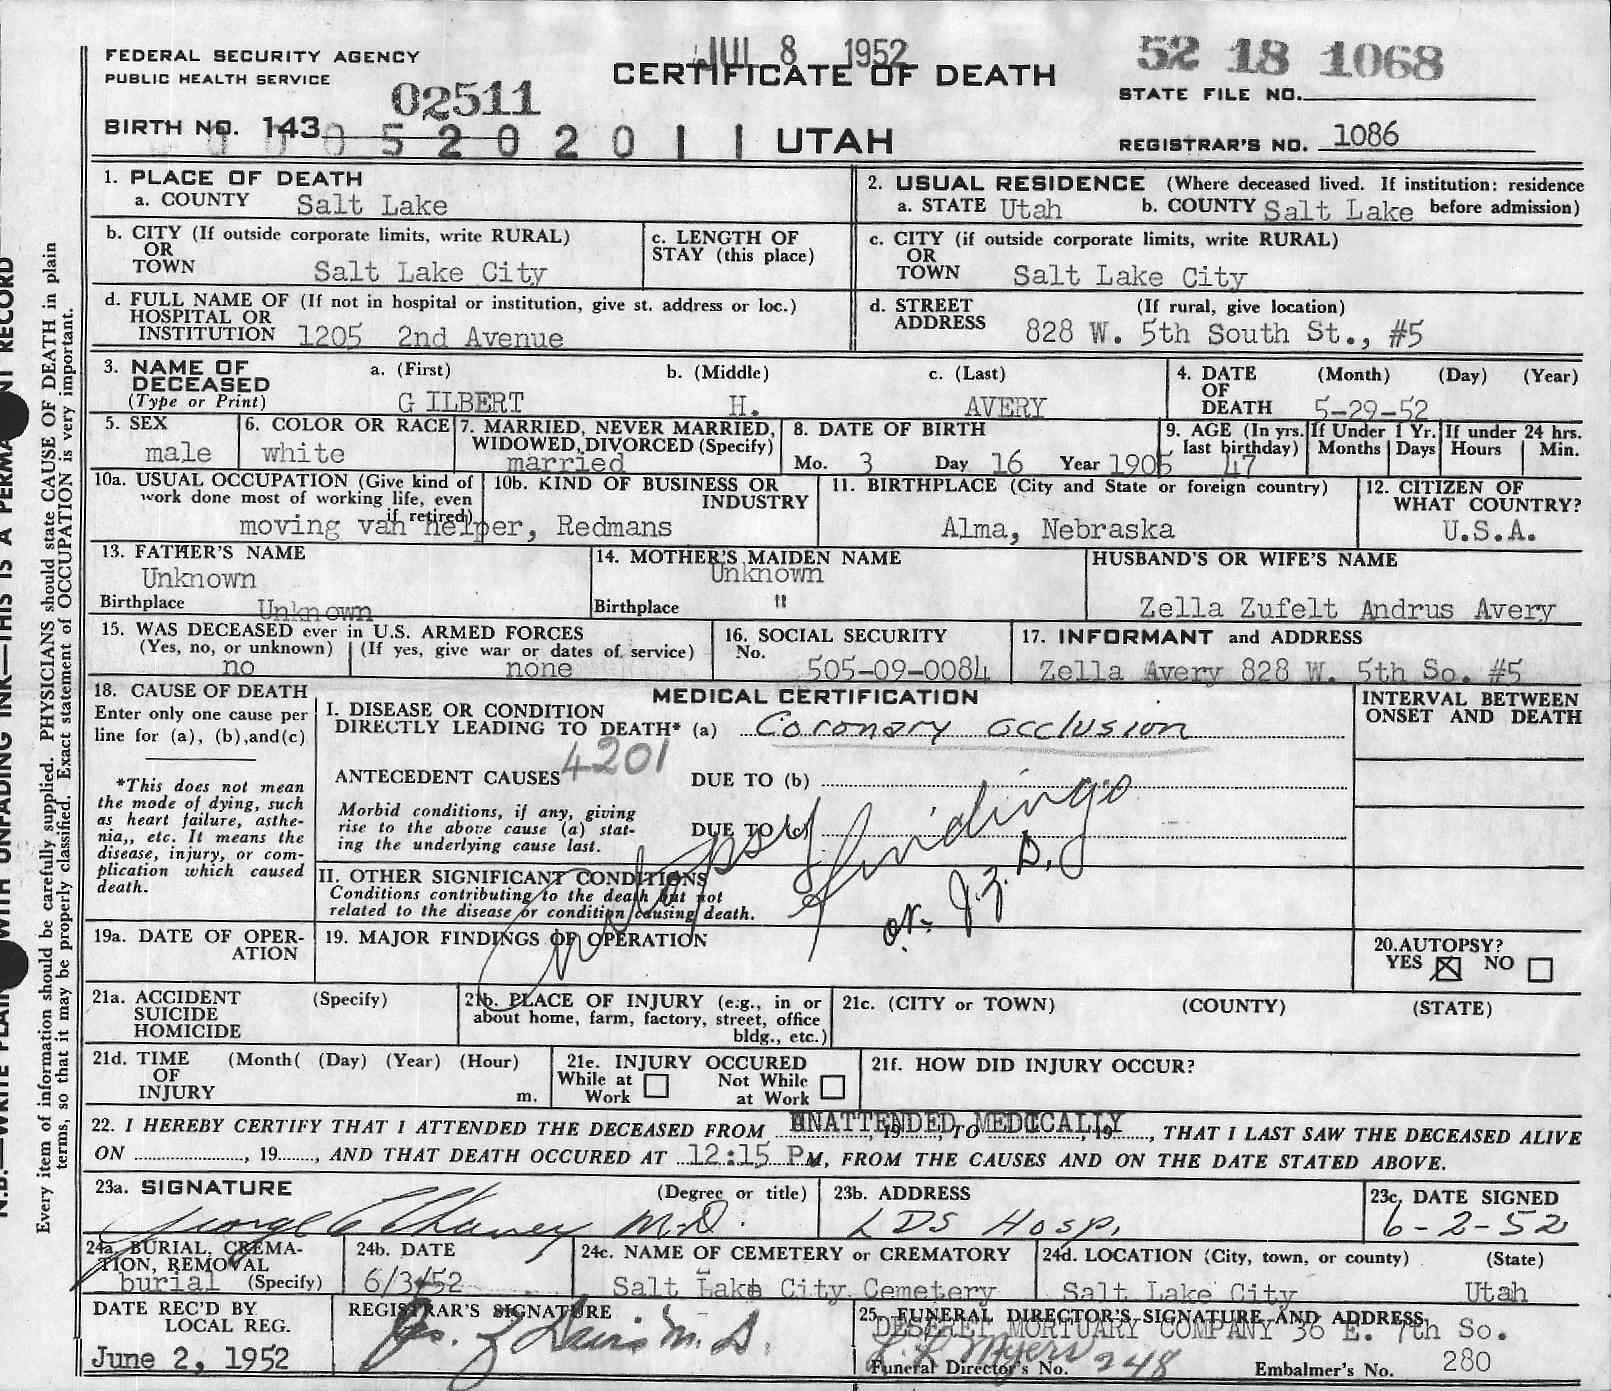 JUL 8 1952
52 18 1068
FEDERAL SECURITY AGENCY
PUBLIC HEALTH SERVICE
CERTIFICATE OF DEATH
STATE FILE NO.
02511
BIRTH NO. 143 052020 1 1 UTAH
REGISTRAR'S NO. 1086
1. PLACE OF DEATH
a. COUNTY Salt Lake
2. USUAL RESIDENCE (Where deceased lived. If institution: residence
a. STATE Utah b. COUNTY Salt Lake before admission)
b. CITY (If outside corporate limits, write RURAL)
OR
TOWN Salt Lake City
c. LENGTH OF
STAY (this place)
c. CITY (if outside corporate limits, write RURAL)
OR
TOWN Salt Lake City
d. FULL NAME OF (If not in hospital or institution, give st. address or loc.)
HOSPITAL OR
INSTITUTION 1205 2nd Avenue
d. STREET (If rural, give location)
ADDRESS 828 W. 5th South St., #5
3. NAME OF
DECEASED
(Type or Print)
a. (First) b. (Middle) c. (Last)
G ILBERT H. AVERY
4. DATE (Month) (Day) (Year)
OF
DEATH 5-29-52
5. SEX
male
6. COLOR OR RACE
white
7. MARRIED, NEVER MARRIED,
WIDOWED, DIVORCED (Specify)
married
8. DATE OF BIRTH
Mo. 3 Day 16 Year 1905
9. AGE (In yrs.
last birthday)
47
If Under 1 Yr.
Months Days
If under 24 hrs.
Hours Min.
10a. USUAL OCCUPATION (Give kind of
work done most of working life, even
if retired)
10b. KIND OF BUSINESS OR
INDUSTRY
moving van helper, Redmans
11. BIRTHPLACE (City and State or foreign country)
Alma, Nebraska
12. CITIZEN OF
WHAT COUNTRY?
U.S.A.
13. FATHER'S NAME
Unknown
Birthplace Unknown
14. MOTHER'S MAIDEN NAME
Unknown
Birthplace "
HUSBAND'S OR WIFE'S NAME
Zella Zufelt Andrus Avery
15. WAS DECEASED ever in U.S. ARMED FORCES
(Yes, no, or unknown) (If yes, give war or dates of service)
no none
16. SOCIAL SECURITY
No.
505-09-0084
17. INFORMANT and ADDRESS
Zella Avery 828 W. 5th So. #5
18. CAUSE OF DEATH
Enter only one cause per
line for (a), (b),and(c)
*This does not mean
the mode of dying, such
as heart failure, asthe-
nia,, etc. It means the
disease, injury, or com-
plication which caused
death.
MEDICAL CERTIFICATION
I. DISEASE OR CONDITION
DIRECTLY LEADING TO DEATH* (a) Coronary occlusion
4201
ANTECEDENT CAUSES DUE TO (b)
Morbid conditions, if any, giving
rise to the above cause (a) stat-
ing the underlying cause last.
DUE TO (c)
Autopsy findings
or. J.Z.D.
INTERVAL BETWEEN
ONSET AND DEATH
II. OTHER SIGNIFICANT CONDITIONS
Conditions contributing to the death but not
related to the disease or condition causing death.
19a. DATE OF OPER-
ATION
19. MAJOR FINDINGS OF OPERATION
20.AUTOPSY?
YES NO
21a. ACCIDENT (Specify)
SUICIDE
HOMICIDE
21b. PLACE OF INJURY (e.g., in or
about home, farm, factory, street, office
bldg., etc.)
21c. (CITY or TOWN) (COUNTY) (STATE)
21d. TIME (Month( (Day) (Year) (Hour)
OF
INJURY m.
21e. INJURY OCCURED
While at Work Not While at Work
21f. HOW DID INJURY OCCUR?
22. I HEREBY CERTIFY THAT I ATTENDED THE DECEASED FROM UNATTENDED MEDICALLY, 19, TO, 19, THAT I LAST SAW THE DECEASED ALIVE
ON, 19, AND THAT DEATH OCCURED AT 12:15 P M, FROM THE CAUSES AND ON THE DATE STATED ABOVE.
23a. SIGNATURE (Degree or title)
George Chaney M.D.
23b. ADDRESS
LDS Hosp.
23c. DATE SIGNED
6-2-52
24a. BURIAL, CREMA-
TION, REMOVAL
burial (Specify)
24b. DATE
6/3/52
24c. NAME OF CEMETERY or CREMATORY
Salt Lake City Cemetery
24d. LOCATION (City, town, or county) (State)
Salt Lake City Utah
DATE REC'D BY
LOCAL REG.
June 2, 1952
REGISTRAR'S SIGNATURE
Jas. Z Davis M.D.
25. FUNERAL DIRECTOR'S SIGNATURE AND ADDRESS
DESERET MORTUARY COMPANY 36 E. 7th So.
Myers
Funeral Director's No. 248 Embalmer's No. 280
Every item of information should be carefully supplied. PHYSICIANS should state CAUSE OF DEATH in plain
terms, so that it may be properly classified. Exact statement of OCCUPATION is very important.
N.B.—WRITE PLAIN WITH UNFADING INK—THIS IS A PERMA NT RECORD